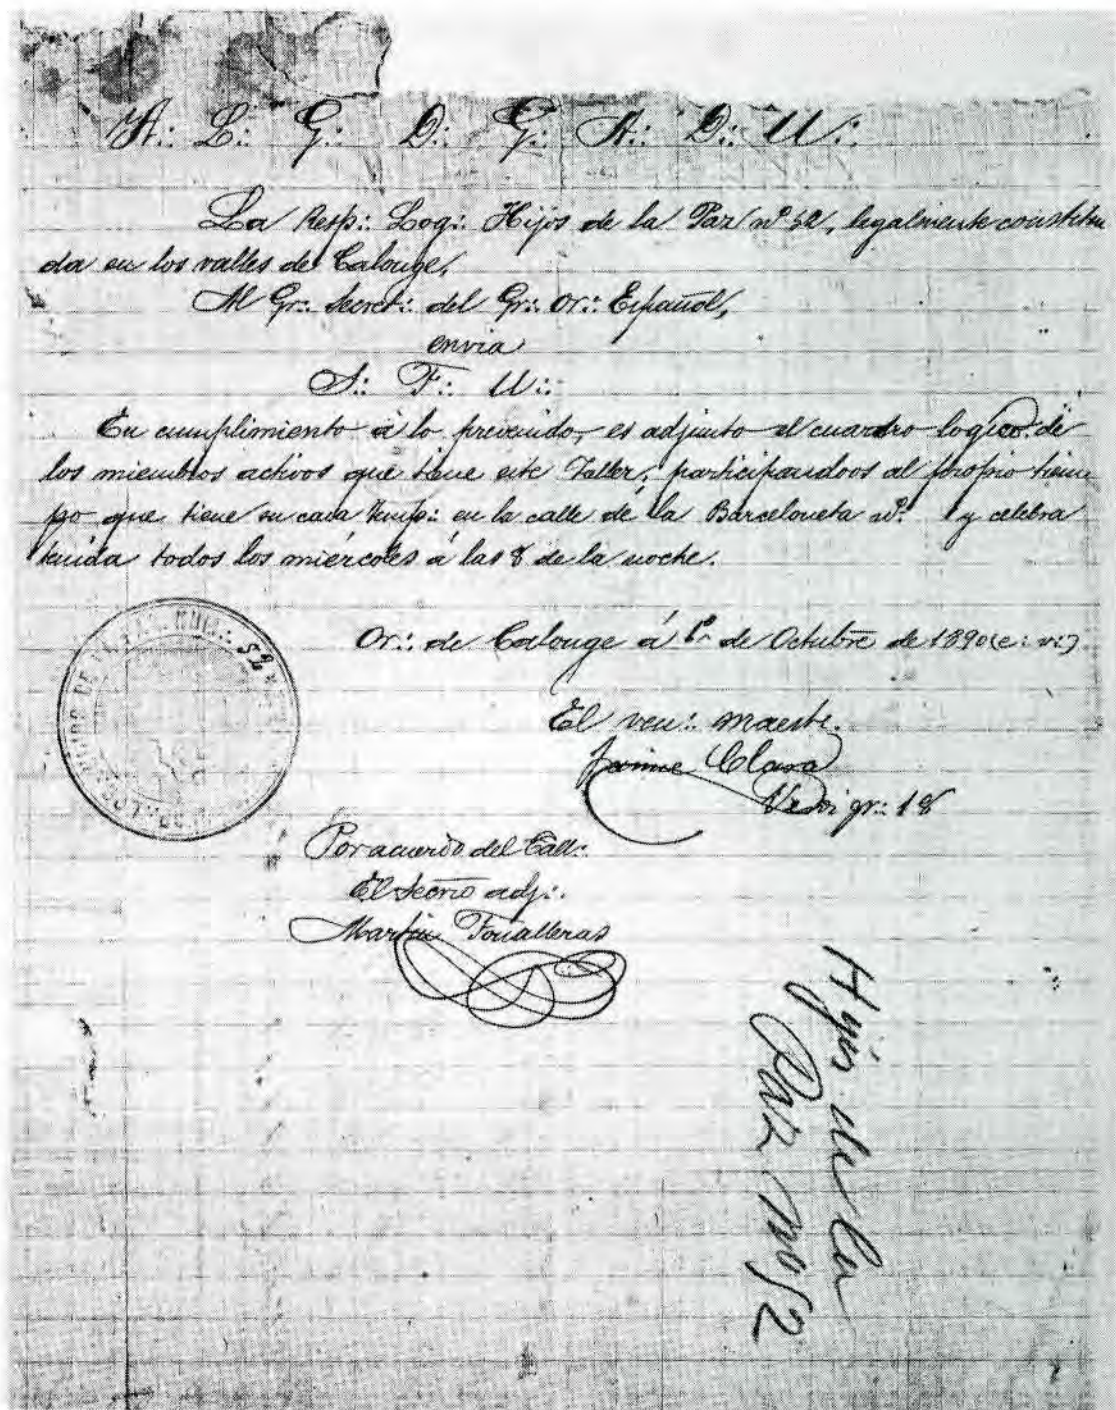 A∴ L∴ G∴ D∴ G∴ A∴ D∴ U∴
La Resp∴ Log∴ Hijos de la Paz nº 52, legalmente constitui
da en los valles de Calonge,
Al Gr∴ Secret∴ del Gr∴ Or∴ Español,
envia
S∴ F∴ U∴
En cumplimiento á lo prevenido, es adjunto el cuadro logico de
los miembros activos que tiene este Taller, participandoos al propio tiem
po que tiene su casa temp∴ en la calle de la Barceloneta nº 1 y celebra
tenida todos los miércoles á las 8 de la noche.
NUM∴ 52
Or∴ de Calonge á 1º de Octubre de 1890 (e∴ v∴)
El ven∴ maest∴
Jaime Clara
gr∴ 18
Por acuerdo del Tall∴
El Secrio adj∴
Martin Fonalleras
Hijos de la
Paz nº 52